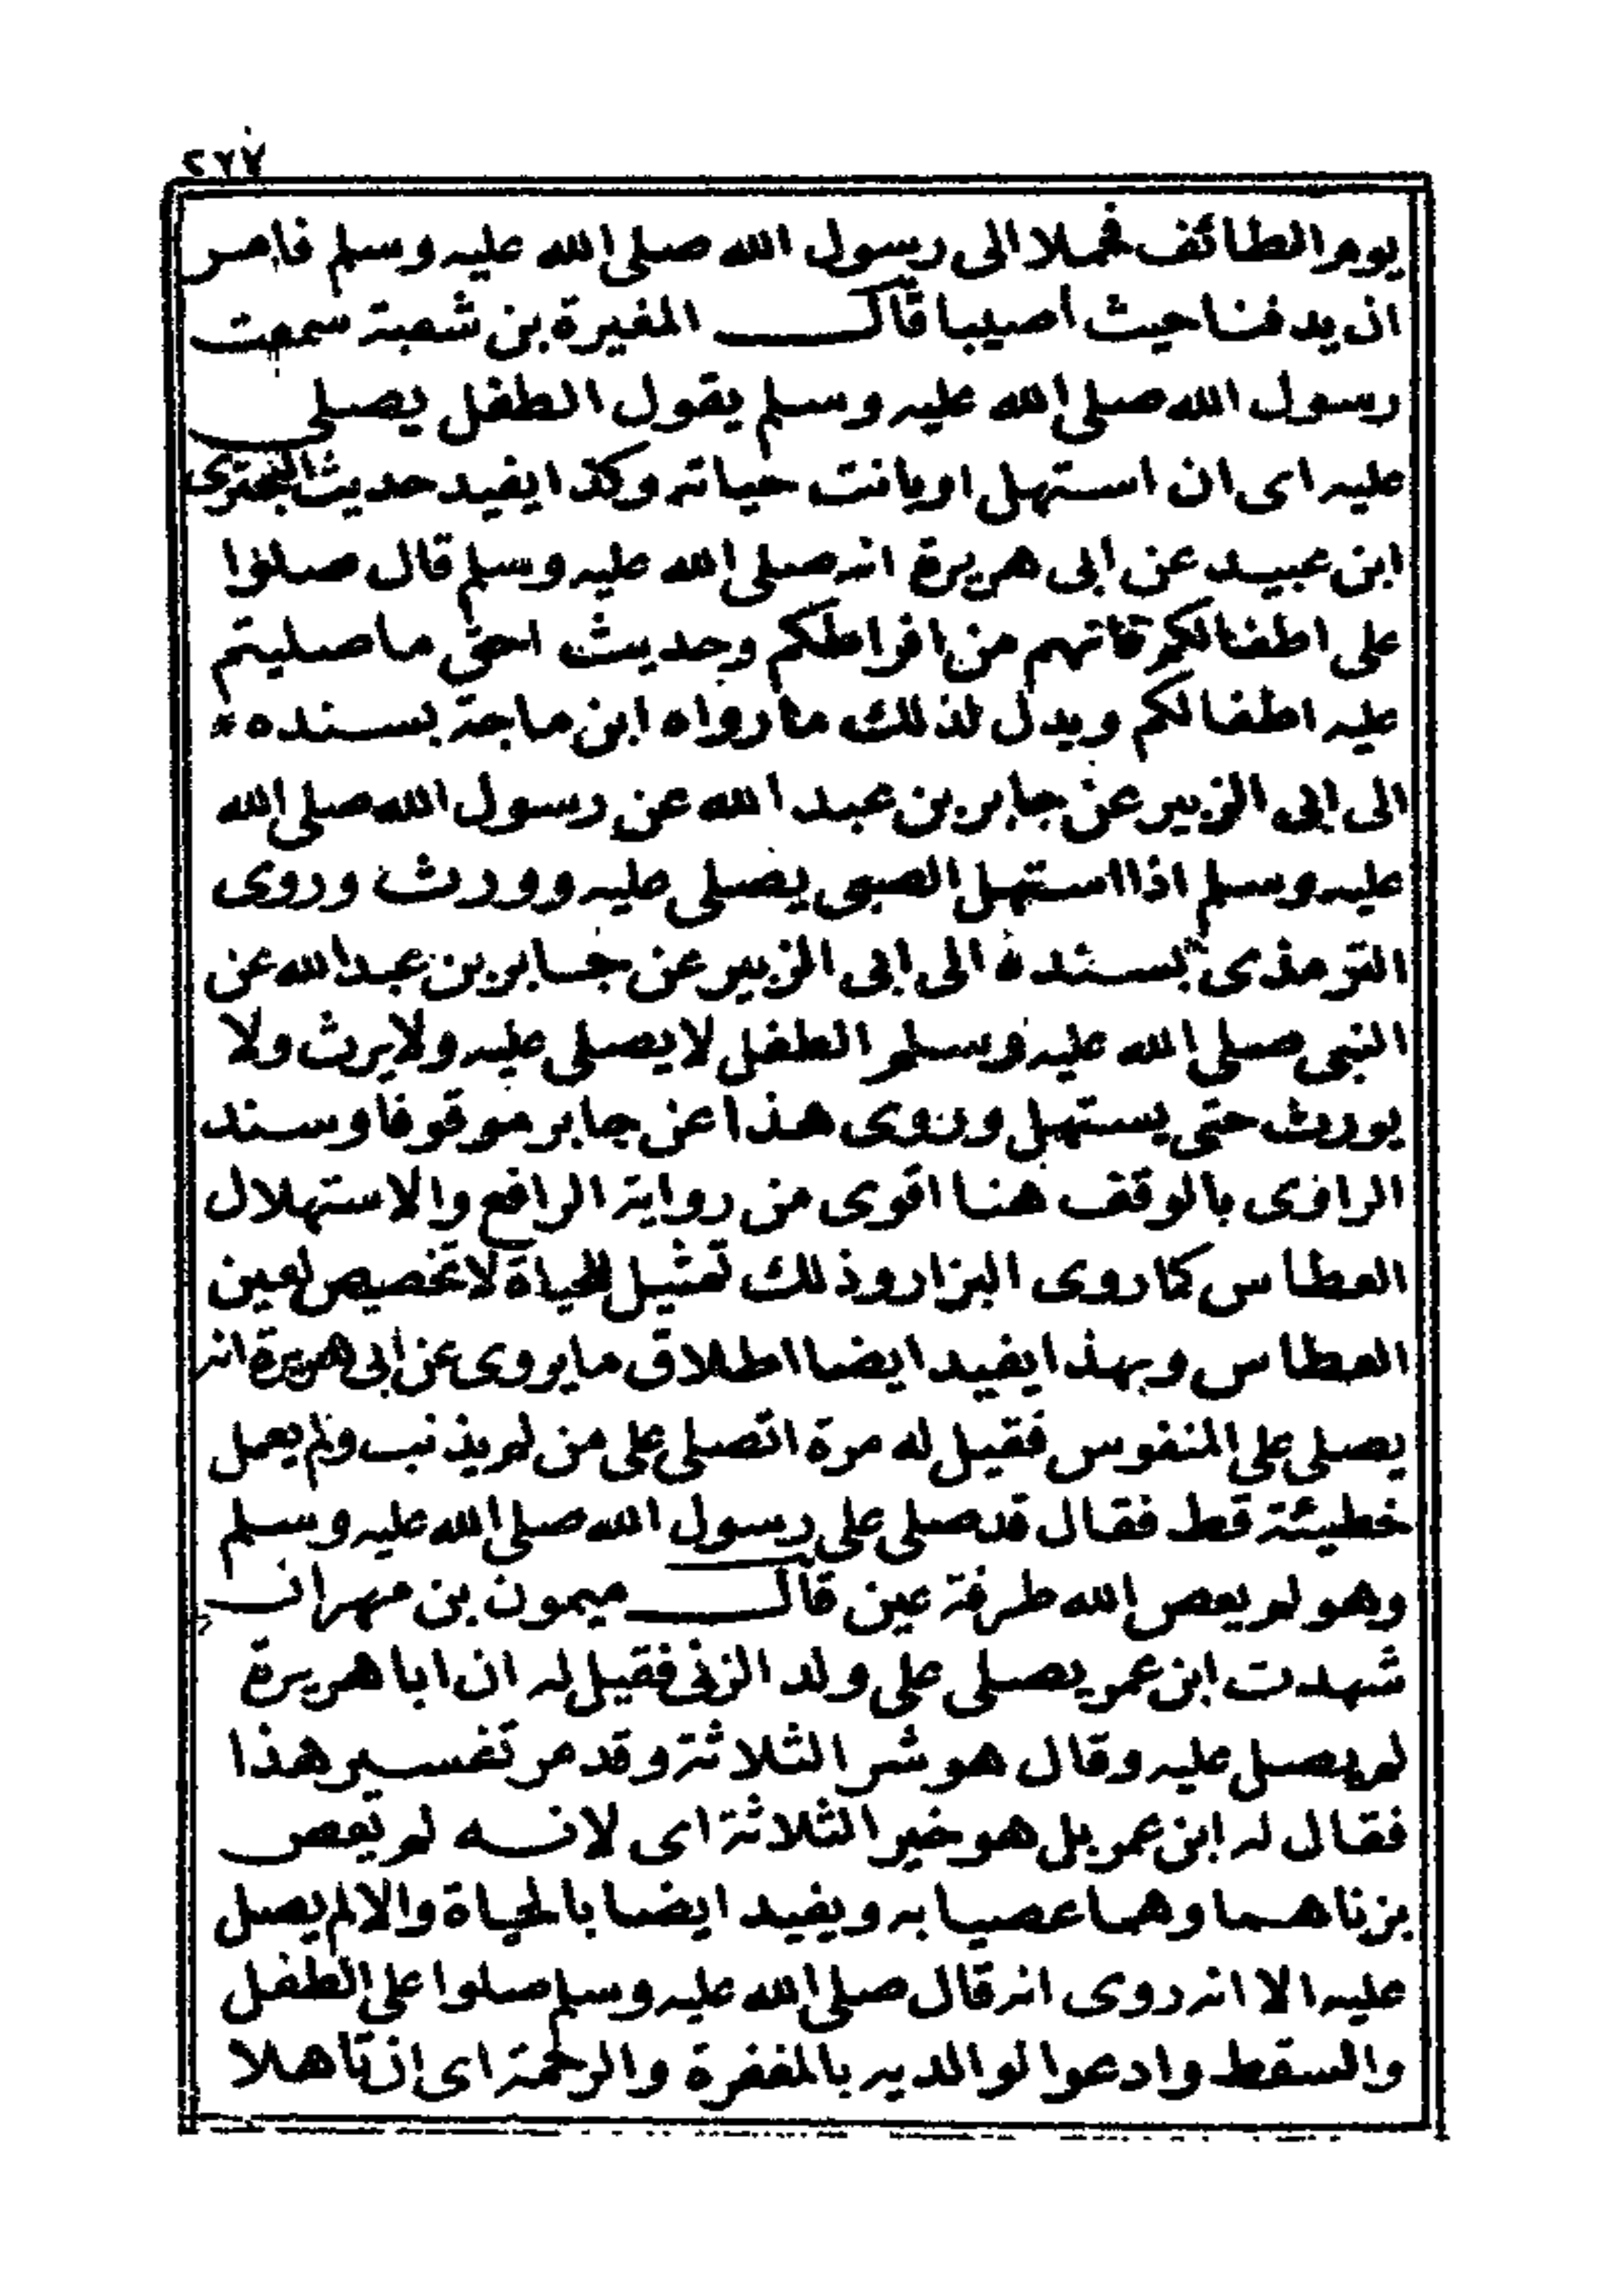 ٢٧٧
يوم الطائف فحملا الى رسول الله صلى الله عليه وسلم فامر
ان يدفنا حيث اصيبا قال المغيرة بن شعبة سمعت
رسول الله صلى الله عليه وسلم يقول الطفل يصلى
عليه اى ان استهل او بانت حياته وكذا يفيد حديث البخترى
ابن عبيد عن ابى هريرة انه صلى الله عليه وسلم قال صلوا
على اطفالكم فانهم من افراطكم وحديث احق ما صليتم
عليه اطفالكم ويدل لذلك ما رواه ابن ماجة بسنده
الى ابى الزبير عن جابر بن عبد الله عن رسول الله صلى الله
عليه وسلم اذا استهل الصبى يصلى عليه وورث وروى
الترمذى بسنده الى ابى الزبير عن جابر بن عبد الله عن
النبى صلى الله عليه وسلم الطفل لا يصلى عليه ولا يرث ولا
يورث حتى يستهل وروى هذا عن جابر موقوفا وسند
الراوى بالوقف هنا اقوى من رواية الرافع والاستهلال
العطاس كما روى البزار وذلك تمثيل للحياة لا تخصيص لعين
العطاس وبهذا يفيد ايضا اطلاق ما يروى عن ابى هريرة انه
يصلى على المنفوس فقيل له مرة اتصلى على من لم يذنب ولم يعمل
خطيئة قط فقال قد صلى على رسول الله صلى الله عليه وسلم
وهو لم يعص الله طرفة عين قال ميمون بن مهران
شهدت ابن عمر يصلى على ولد الزنى فقيل له ان ابا هريرة
لم يصل عليه وقال هو شر الثلاثة وقد مر تفسير هذا
فقال له ابن عمر بل هو خير الثلاثة اى لانه لم يعص
بزناهما وهما عصيا به ويفيد ايضا بالحياة والا لم يصل
عليه الا انه روى انه قال صلى الله عليه وسلم صلوا على الطفل
والسقط وادعوا لوالديه بالمغفرة والرحمة اى ان تاهلا